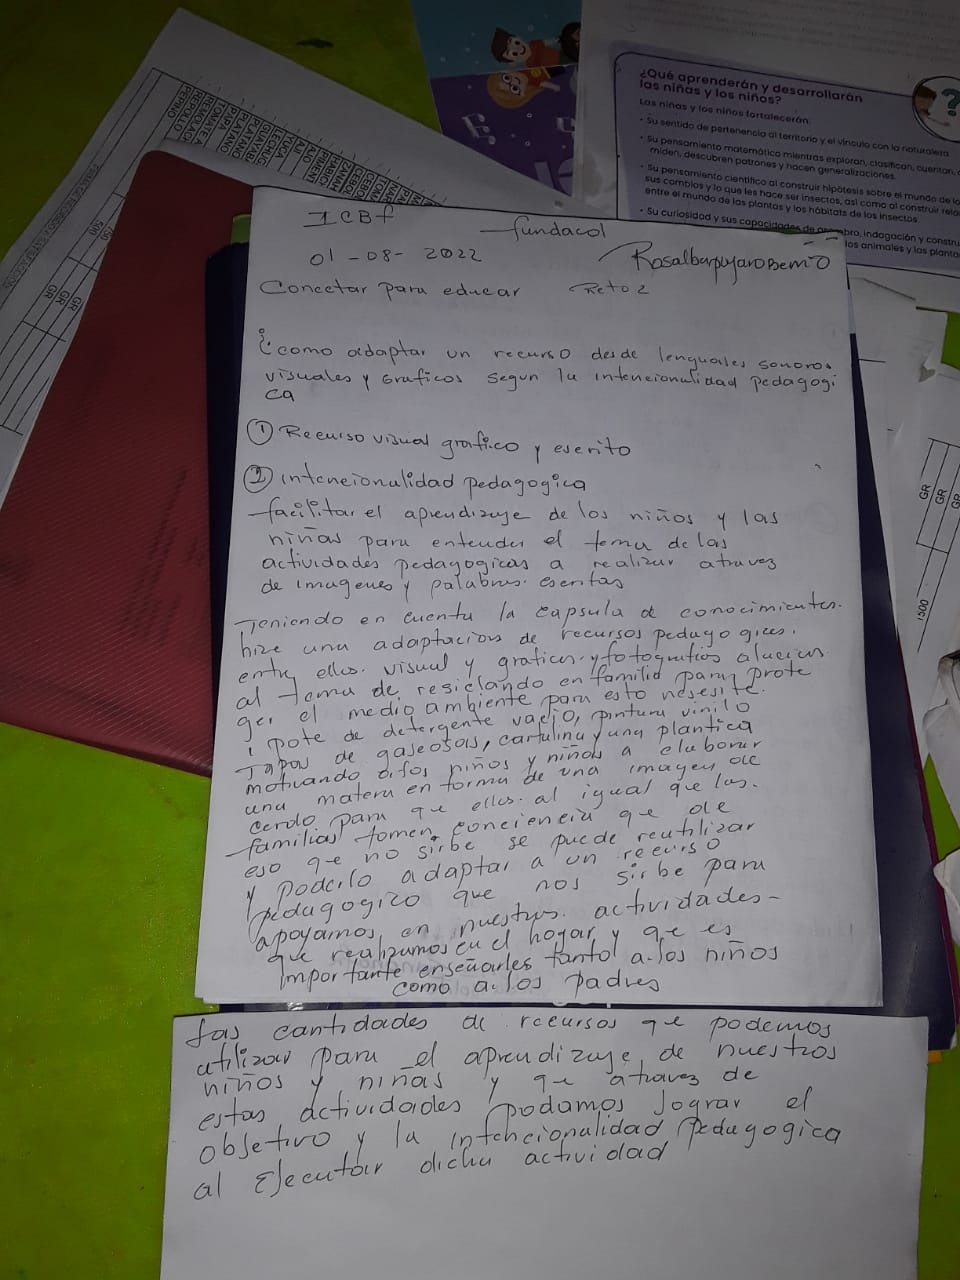 ¿Qué aprenderán y desarrollarán
las niñas y los niños?
Las niñas y los niños fortalecerán:
• Su sentido de pertenencia al territorio y el vínculo con la naturaleza
• Su pensamiento matemático mientras exploran, clasifican, cuentan,
miden, descubren patrones y hacen generalizaciones.
• Su pensamiento científico al construir hipótesis sobre el mundo de lo
sus cambios y lo que les hace ser insectos, así como al construir rela
entre el mundo de las plantas y los hábitats de los insectos.
• Su curiosidad y sus capacidades de asombro, indagación y constru
los animales y las planta
PEPINO
REPOLLO
REMOLACHA
TOMATE A
PAPA
PLATANO
GUAYAB
LECHUG
YUCA
AJI
AJO
PIMENT
HABICH
ZANAH
CEBOL
750
500
GR
GR
GR
GR
GR
GR
1500
ICBf
fundacol
01-08-2022
Conectar para educar Reto 2
¿como adaptar un recurso desde lenguajes sonoros
visuales y Graficos segun la intencionalidad pedagogi
ca
① Recurso visual grafico y escrito
② intencionalidad pedagogica
facilitar el aprendizaje de los niños y las
niñas para entender el tema de las
actividades pedagogicas a realizar atraves
de imagenes y palabras escritas
Teniendo en cuenta la capsula de conocimientos.
hize una adaptacion de recursos pedagogicos.
entre ellos. visual y graficos y fotografias alucivas
al tema de resiclando en familia para prote
ger el medio ambiente para esto nesesite.
1 pote de detergente vacio, pintura vinilo
Tapas de gaseosas, cartulina y una plantica
motivando a los niños y niñas a elaborar
una matera en forma de una imagen de
cerdo para que ellos. al igual que las.
familias tomen conciencia que de
eso qe no sirbe se puede reutilizar
y poderlo adaptar a un recurso
pedagogico que nos sirbe para
apoyarnos en nuestras actividades-
que realizamos en el hogar y qe es
importante enseñarles tanto a los niños
como a los padres
las cantidades de recursos qe podemos
utilizar para el aprendizaje de nuestros
niños y niñas y qe atraves de
estas actividades podamos lograr el
objetivo y la intencionalidad Pedagogica
al Ejecutar dicha actividad